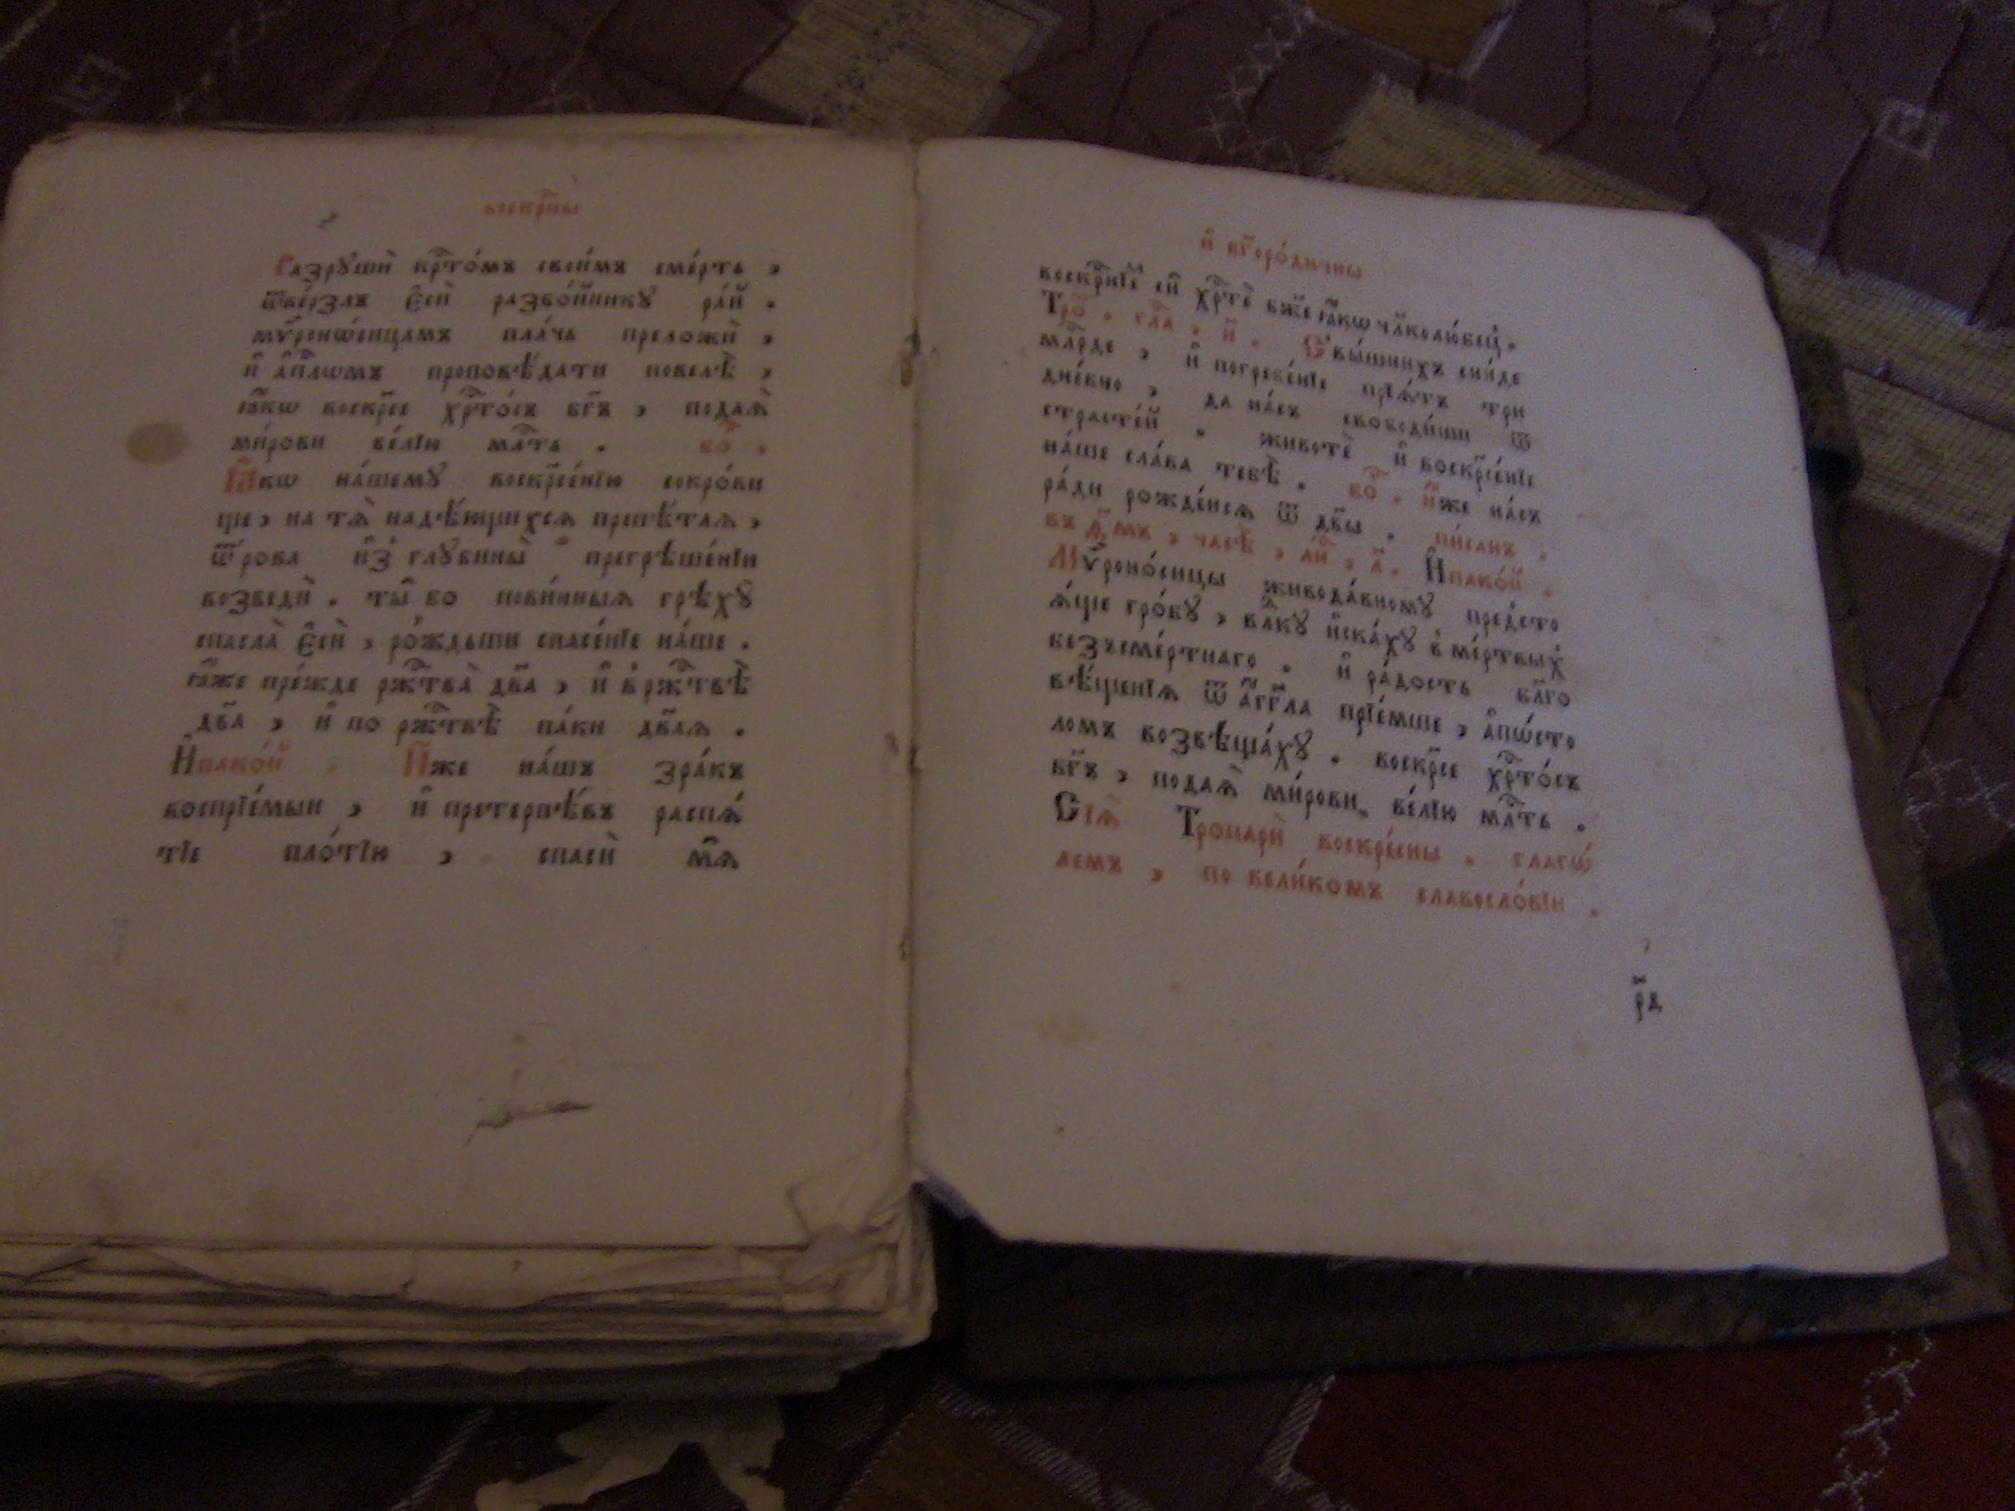 воскр҇ны
Разрꙋши́ крⷭ҇то́мъ свои́мъ сме́рть ,
ѿве́рзлъ є҆сѝ разбо́йникꙋ ра́й .
мѷроно́сицамъ пла́чь преложѝ ,
и҆ а҆пⷭ҇лѡмъ проповѣ́дати повелѣ̀ ,
ꙗ҆́кѡ воскр҃се хрⷭ҇то́съ бг҃ъ , подаѧ̀
ми́рови ве́лїю млⷭ҇ть . бо҇ .
Ꙗ҆́кѡ на́шемꙋ воскрⷭ҇е́нїю сокро́ви
ще , на тѧ̀ надѣ́ющихсѧ препѣ́таѧ ,
ѿ ро́ва и҆з̾ глꙋбины̀ прегрѣше́нїи
возведѝ . ты́ бо пови́нныѧ грѣхꙋ̀
спасла̀ є҆сѝ , ро́ждьши спасе́нїе на́ше .
ꙗ҆́же пре́жде ржⷭ҇тва̀ дв҃а , и҆ в̾ ржⷭ҇твѣ̀
дв҃а , и҆ по ржⷭ҇твѣ̀ па́ки дв҃аѧ .
И҆пако́й . И҆́же на́шъ зра́къ
воспрїе́мыи , и҆ претерпѣ́въ распѧ́
тїе пло́тїю , спасѝ мѧ̀
и҆ бг҃оро́дичны
воскрⷭ҇нїе́м си҆ хрⷭ҇тѐ бж҃е ꙗ҆́кѡ чл҃колю́бец̾ .
Тро҇ . гла҇ , и҃ . С вы́шнихъ сни́де
млⷭ҇рде , и҆ погребе́нїе прїѧ́тъ три
дне́вно , да на́съ свободи́ши ѿ
страсте́й . животѐ и҆ воскрⷭ҇е́нїе
на́ше сла́ва тебѣ̀ . бо҇ . и҆́же на́съ
ра́ди рожде́исѧ ѿ дв҃ы . пи́санъ .
въ д҃,мъ , часѣ̀ , ли҇ , а҃ . И҆пако́й .
Мѷроно́сицы живода́вномꙋ предсто
ѧ́ще гро́бꙋ , вⷧ҇кꙋ и҆ска́хꙋ в̾ ме́ртвых̾
безъсме́ртнаго . и҆ ра́дость бл҃го
вѣ́щенїѧ ѿ а҆́гг҃ла прїе́мше , а҆пѡ́сто
ломъ возвѣща́хꙋ . воскр҃се хрⷭ҇то́съ
бг҃ъ , подаѧ̀ ми́рови ве́лїю млⷭ҇ть .
Сїѧ̀ Тропарѝ воскре́сны . глагѡ́
лемъ , по вели́комъ славосло́вїи .
р҃д